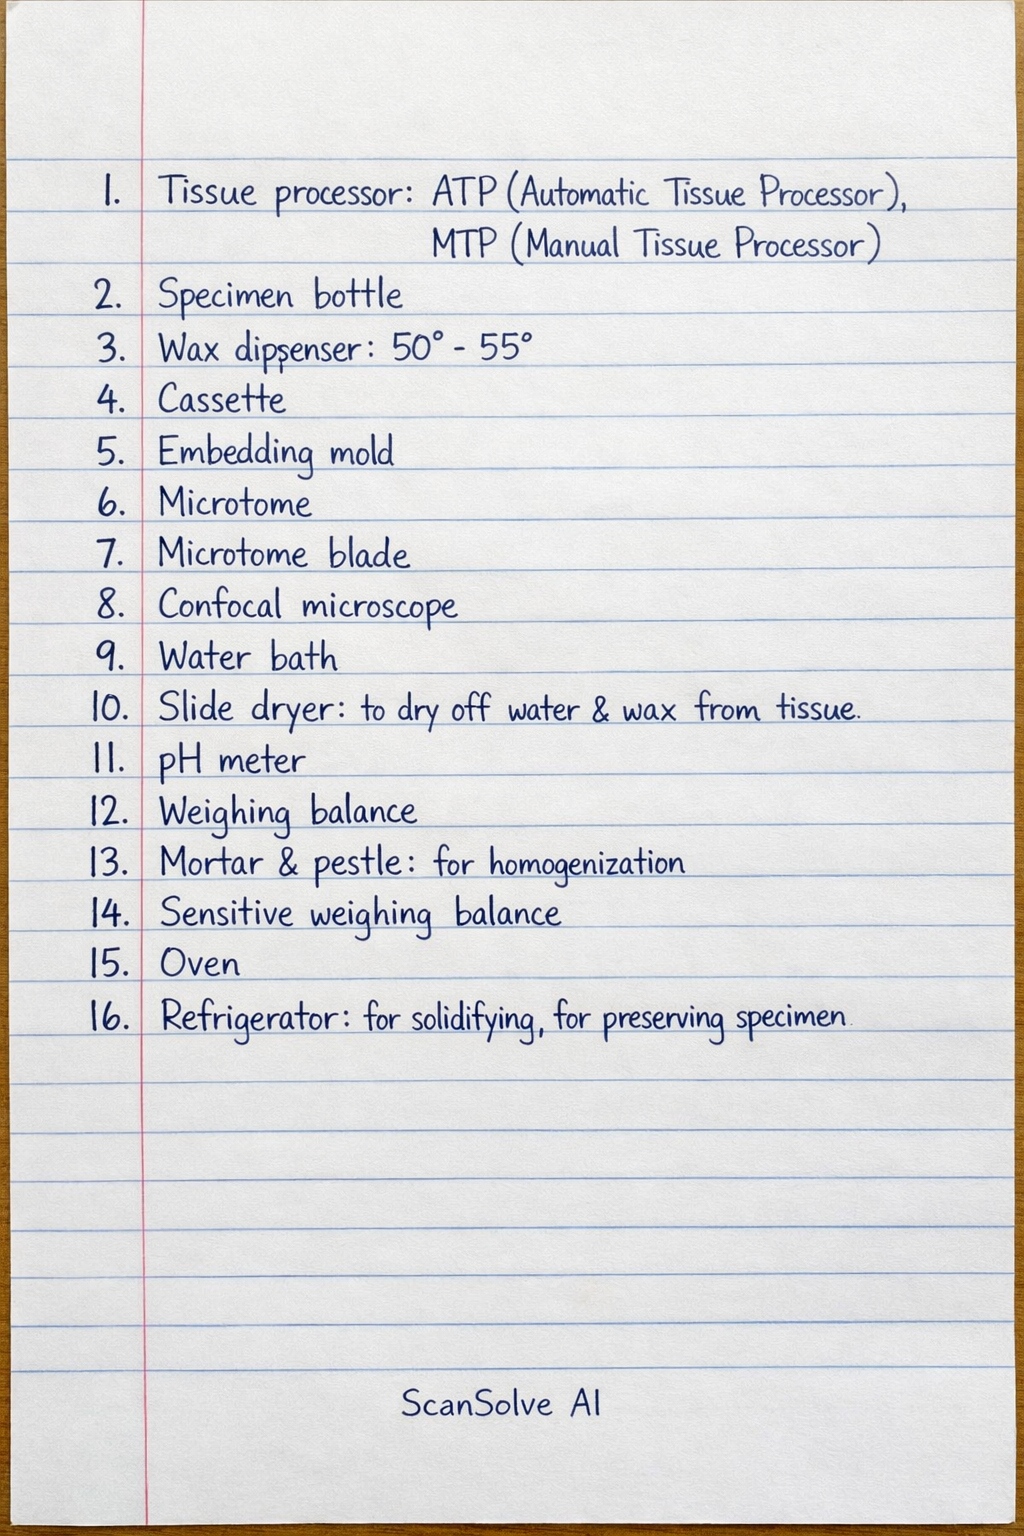 1. Tissue processor: ATP (Automatic Tissue Processor),
MTP (Manual Tissue Processor)
2. Specimen bottle
3. Wax dipsenser: 50° - 55°
4. Cassette
5. Embedding mold
6. Microtome
7. Microtome blade
8. Confocal microscope
9. Water bath
10. Slide dryer: to dry off water & wax from tissue.
11. pH meter
12. Weighing balance
13. Mortar & pestle: for homogenization
14. Sensitive weighing balance
15. Oven
16. Refrigerator: for solidifying, for preserving specimen.
ScanSolve AI